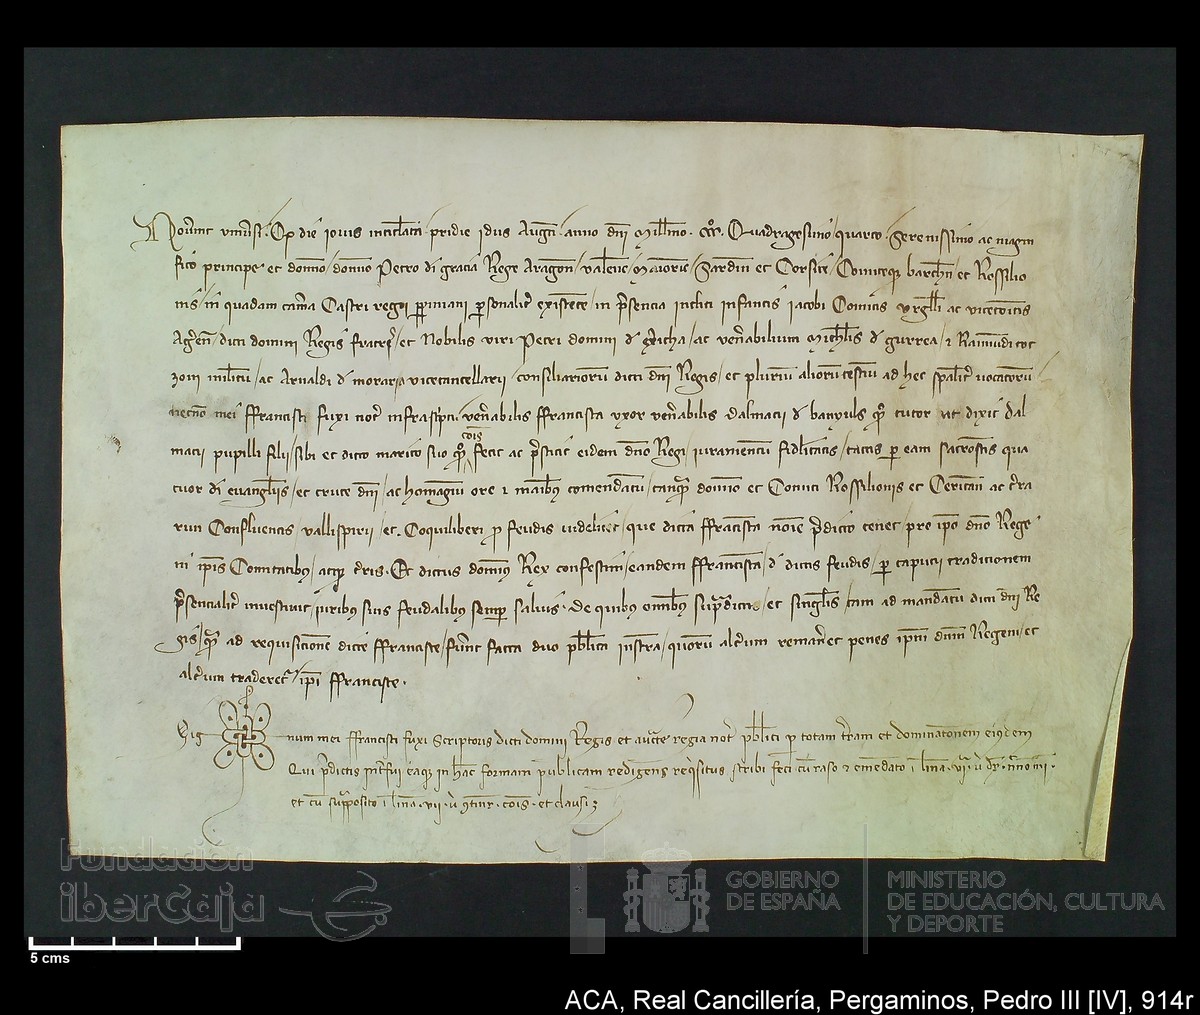 Noverint universi. Qd die iovis intitulata pridie idus Augusti anno dni Millmo. CCCº. Quadragesimo quarto. Serenissimo ac magni
fico principe et domno / domno Petro di gracia Rege Aragon / Valenc / Maioric / Sardin et Corsice / Comiteqz barchn / et Rossilio
nis / in quadam camera Castri regii ppiniani psonalit existente / in psencia incliti infantis iacobi Comitis Urgelli ac vicecomitis
Agen / dicti domini Regis fratris / et Nobilis viri Petri domini d Exicha / ac venabilium Michlis d gurrea / z Raimundi
militu / ac Arnaldi d moraria vicecancellarii consiliarioru dicti dni Regis / et pluriu alioru testiu ad hec spalit vocatoru
necno mei ffrancisci fuxi not infrascpti. venabilis ffrancisca uxor venabilis dalmacii d banyuls tutor ut dixit dal
cois
macii pupilli filii / sibi et dicto marito suo fecit ac pstitit eidem dno Regi / iuramentum fidelitatis / tactis p eam sacrostis qua
tuor di evanglis / et cruce dni / ac homagiu ore z manibus comendatu / tanqua domno et Comiti Rossilionis et Ceritan ac tra
rum Confluentis vallispirii / et Coquiliberi p feudis videlicet / que dicta ffrancisca noie pdicto tenet / pro ipo dno Rege
in ipis Comitatibus / atqz tris. Et dictus domnus Rex confestim / eandem ffrancisca / d dictis feudis / p capucii traditionem
psencialit investivit / iuribus suis feudalibus semp salvis. De quibus omnibus supdictis / et singlis / tam ad mandatu dicti dni Re
gis / qua ad requisicione dicte ffrancisce / funt facta duo pblica instra / quoru altum remanet penes ipm dnm Regem / et
altum traderet / ipi ffrancisce.
Sig num mei ffrancisci fuxi Scriptoris dicti domini Regis et aucte regia not pblici p totam tram et dominatonem eiusdem
Qui pdictis intfui eaqz in hac formam publicam redigens reqisitus scribi feci cu raso z emedato i linea
et cu supposito i linea. vii. u cois. et clausi
Fundación
iberCaja
GOBIERNO
DE ESPAÑA
MINISTERIO
DE EDUCACIÓN, CULTURA
Y DEPORTE
5 cms
ACA, Real Cancillería, Pergaminos, Pedro III [IV], 914r